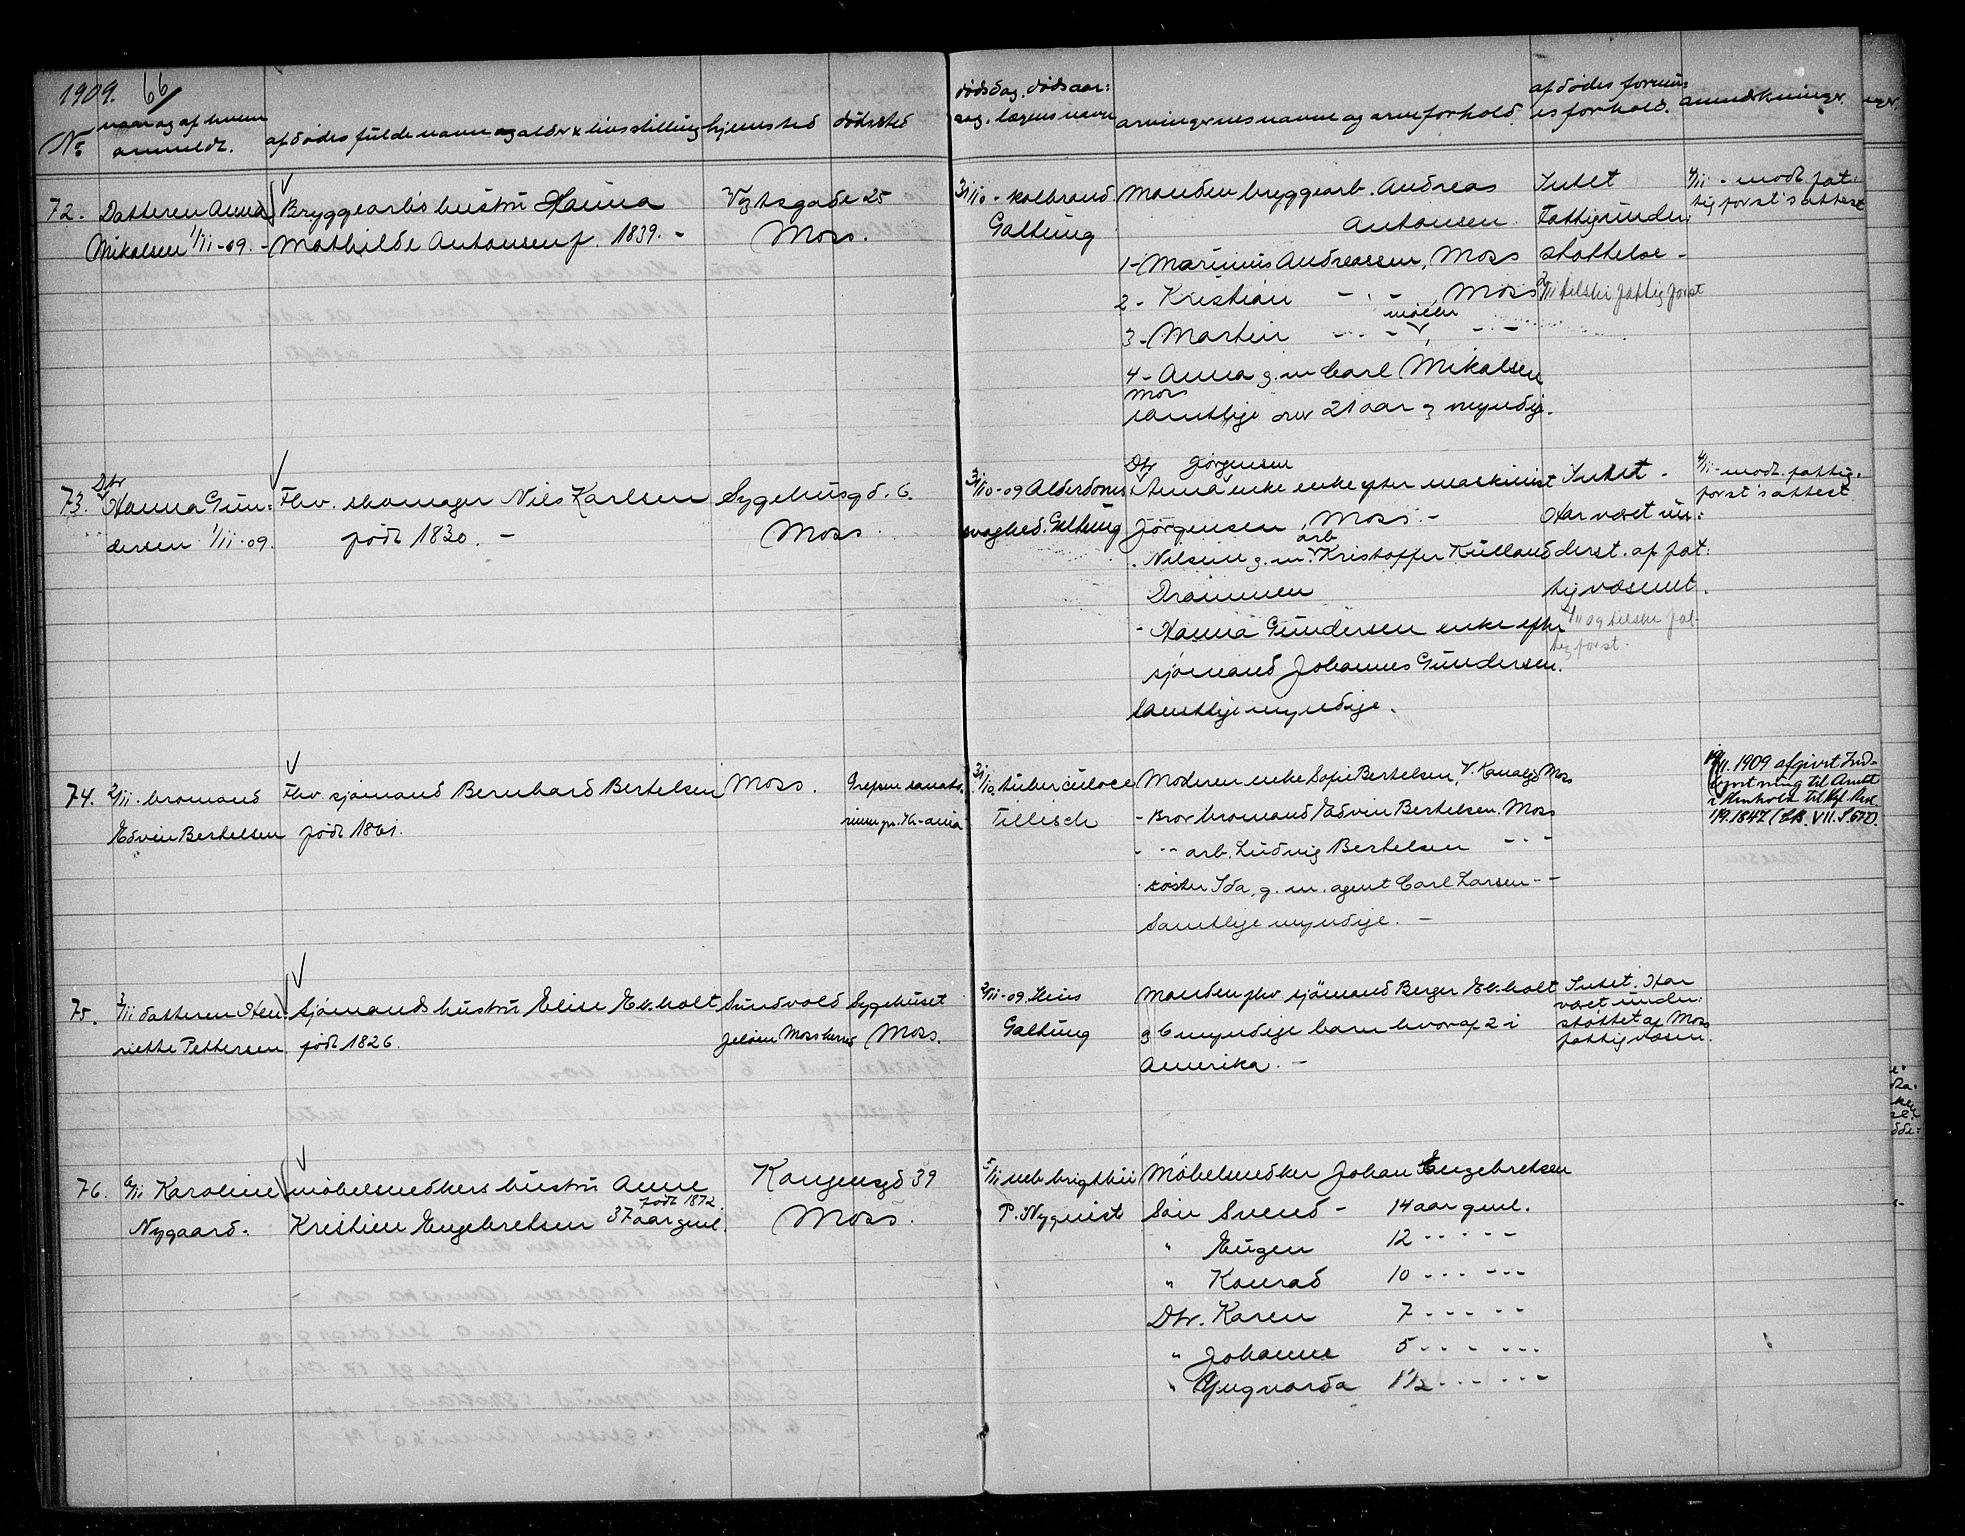 1909. 66/
No
naar og af hvem
anmeldt.
afdødes fulde navn og alder & livsstilling
hjemsted
dødssted
dødsdag, dødsaar:
sag. lægens navn
arvingernes navne og arveforhold.
afdødes formu:
esforhold.
anmærkninger.
72. Datteren Anna
Mikalsen 1/11-09. -
Bryggearb's hustru Hanna
Mathilde Antonsen f. 1839. -
Vogtsgade 25
Moss.
31/10 - kolbrand
Galtung
Manden bryggearb. Andreas
Antonsen
1- Marinius Andreassen, Moss
2- Kristian - . - , Moss
3- Martin - . - - . -
4- Anna g. m. Carl Mikalsen
Moss
samtlige over 21 aar og myndige.
Intet
Fattigunder:
støttelse -
2/11 tilskr fattigforst
4/11 - modt. fat:
tigforst's attest
73. Dtr
Hanna Gun:
dersen 1/11-09.
Fhv. skomager Niels Karlsen
født 1830. -
Sygehusgd. 6.
Moss.
31/10-09 Alderdoms
svaghed. Galtung
Dtr Jørgensen
Anna enke efter maskinist
Jørgensen, Moss. -
arb
Nilsen g. m. Kristoffer Kulland
Drammen
- Hanna Gundersen enke efter
sjømand Johannes Gundersen.
Samtlige myndige.
Intet -
Har været un:
derst. af fat:
tigvæsenet.
1/11 09 tilskr fat-
tigforst.
4/11 - modt. fattig-
forst's attest
74. 2/11. bromand
Edvin Bertelsen
Fhv. sjømand Bernhard Bertelsen
født 1861.
Moss.
Grefsen sanato:
rium pr. Kr-ania
31/10 tuberculose
Tillisch
Moderen enke Sofie Bertelsen, V. Kanalgd Moss
- Bror bromand Edvin Bertelsen. Moss
- - - arb. Ludvig Bertelsen - - -
. søster Ida, g. m. agent Carl Larsen - -
Samtlige myndige. -
19/11. 1909 afgivet Ind-
beretning til Amtet
i Henhold til Kgl. Res.
1/9. 1847
75. 3/11 datteren Hen
riette Pettersen
Sjømands hustru Elise Ekholt
født 1826.
Sundvold
Jeløen Mossherred
Sygehuset
Moss.
2/11-09.
Galtung
Manden fhv sjømand Berger Ekholt
og 6 myndige barn hvoraf 2 i
Amerika. -
Intet. Har
været under:
støttet af Moss
fattigvæsen.
76. 6/11 Karoline
Nygaard.
møbelsnedkers hustru Anne
født 1872.
Kristine Engebretsen 37 aar gml.
Kongensgd 39
Moss.
5/11 mb. brigthii
P. Nyquist
Møbelsnedker Johan Engebretsen
Søn Svend - 14 aar gml.
" Eugen 12 - - - - -
" Konrad 10 - - - - - -
Dtr. Karen 7 - - - - -
" Johanne 5 - - - - - -
" Yngvarda 1½ - - - - -